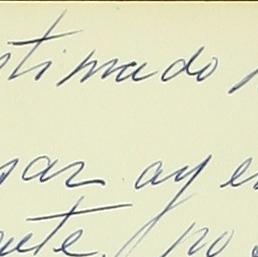 stimado
sar ay e
ente, no